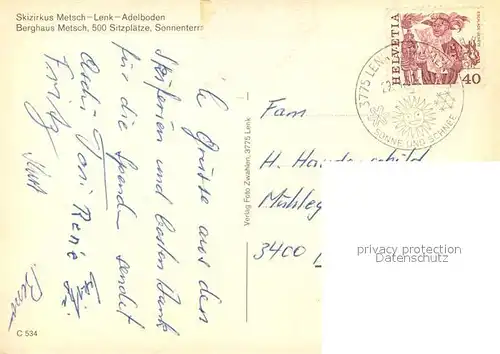 Skizirkus Metsch-Lenk-Adelboden
Berghaus Metsch, 500 Sitzplätze, Sonnenterr
HELVETIA
40
3775 LENK
SONNE UND SCHNEE
Verlag Foto Zwahlen, 3775 Lenk
Grüsse aus den
Skiferien und besten Dank
für die Spende sendet
Toni René
Fritz
Fam
H.
3400
privacy protection
DATENSCHUTZ
C 534